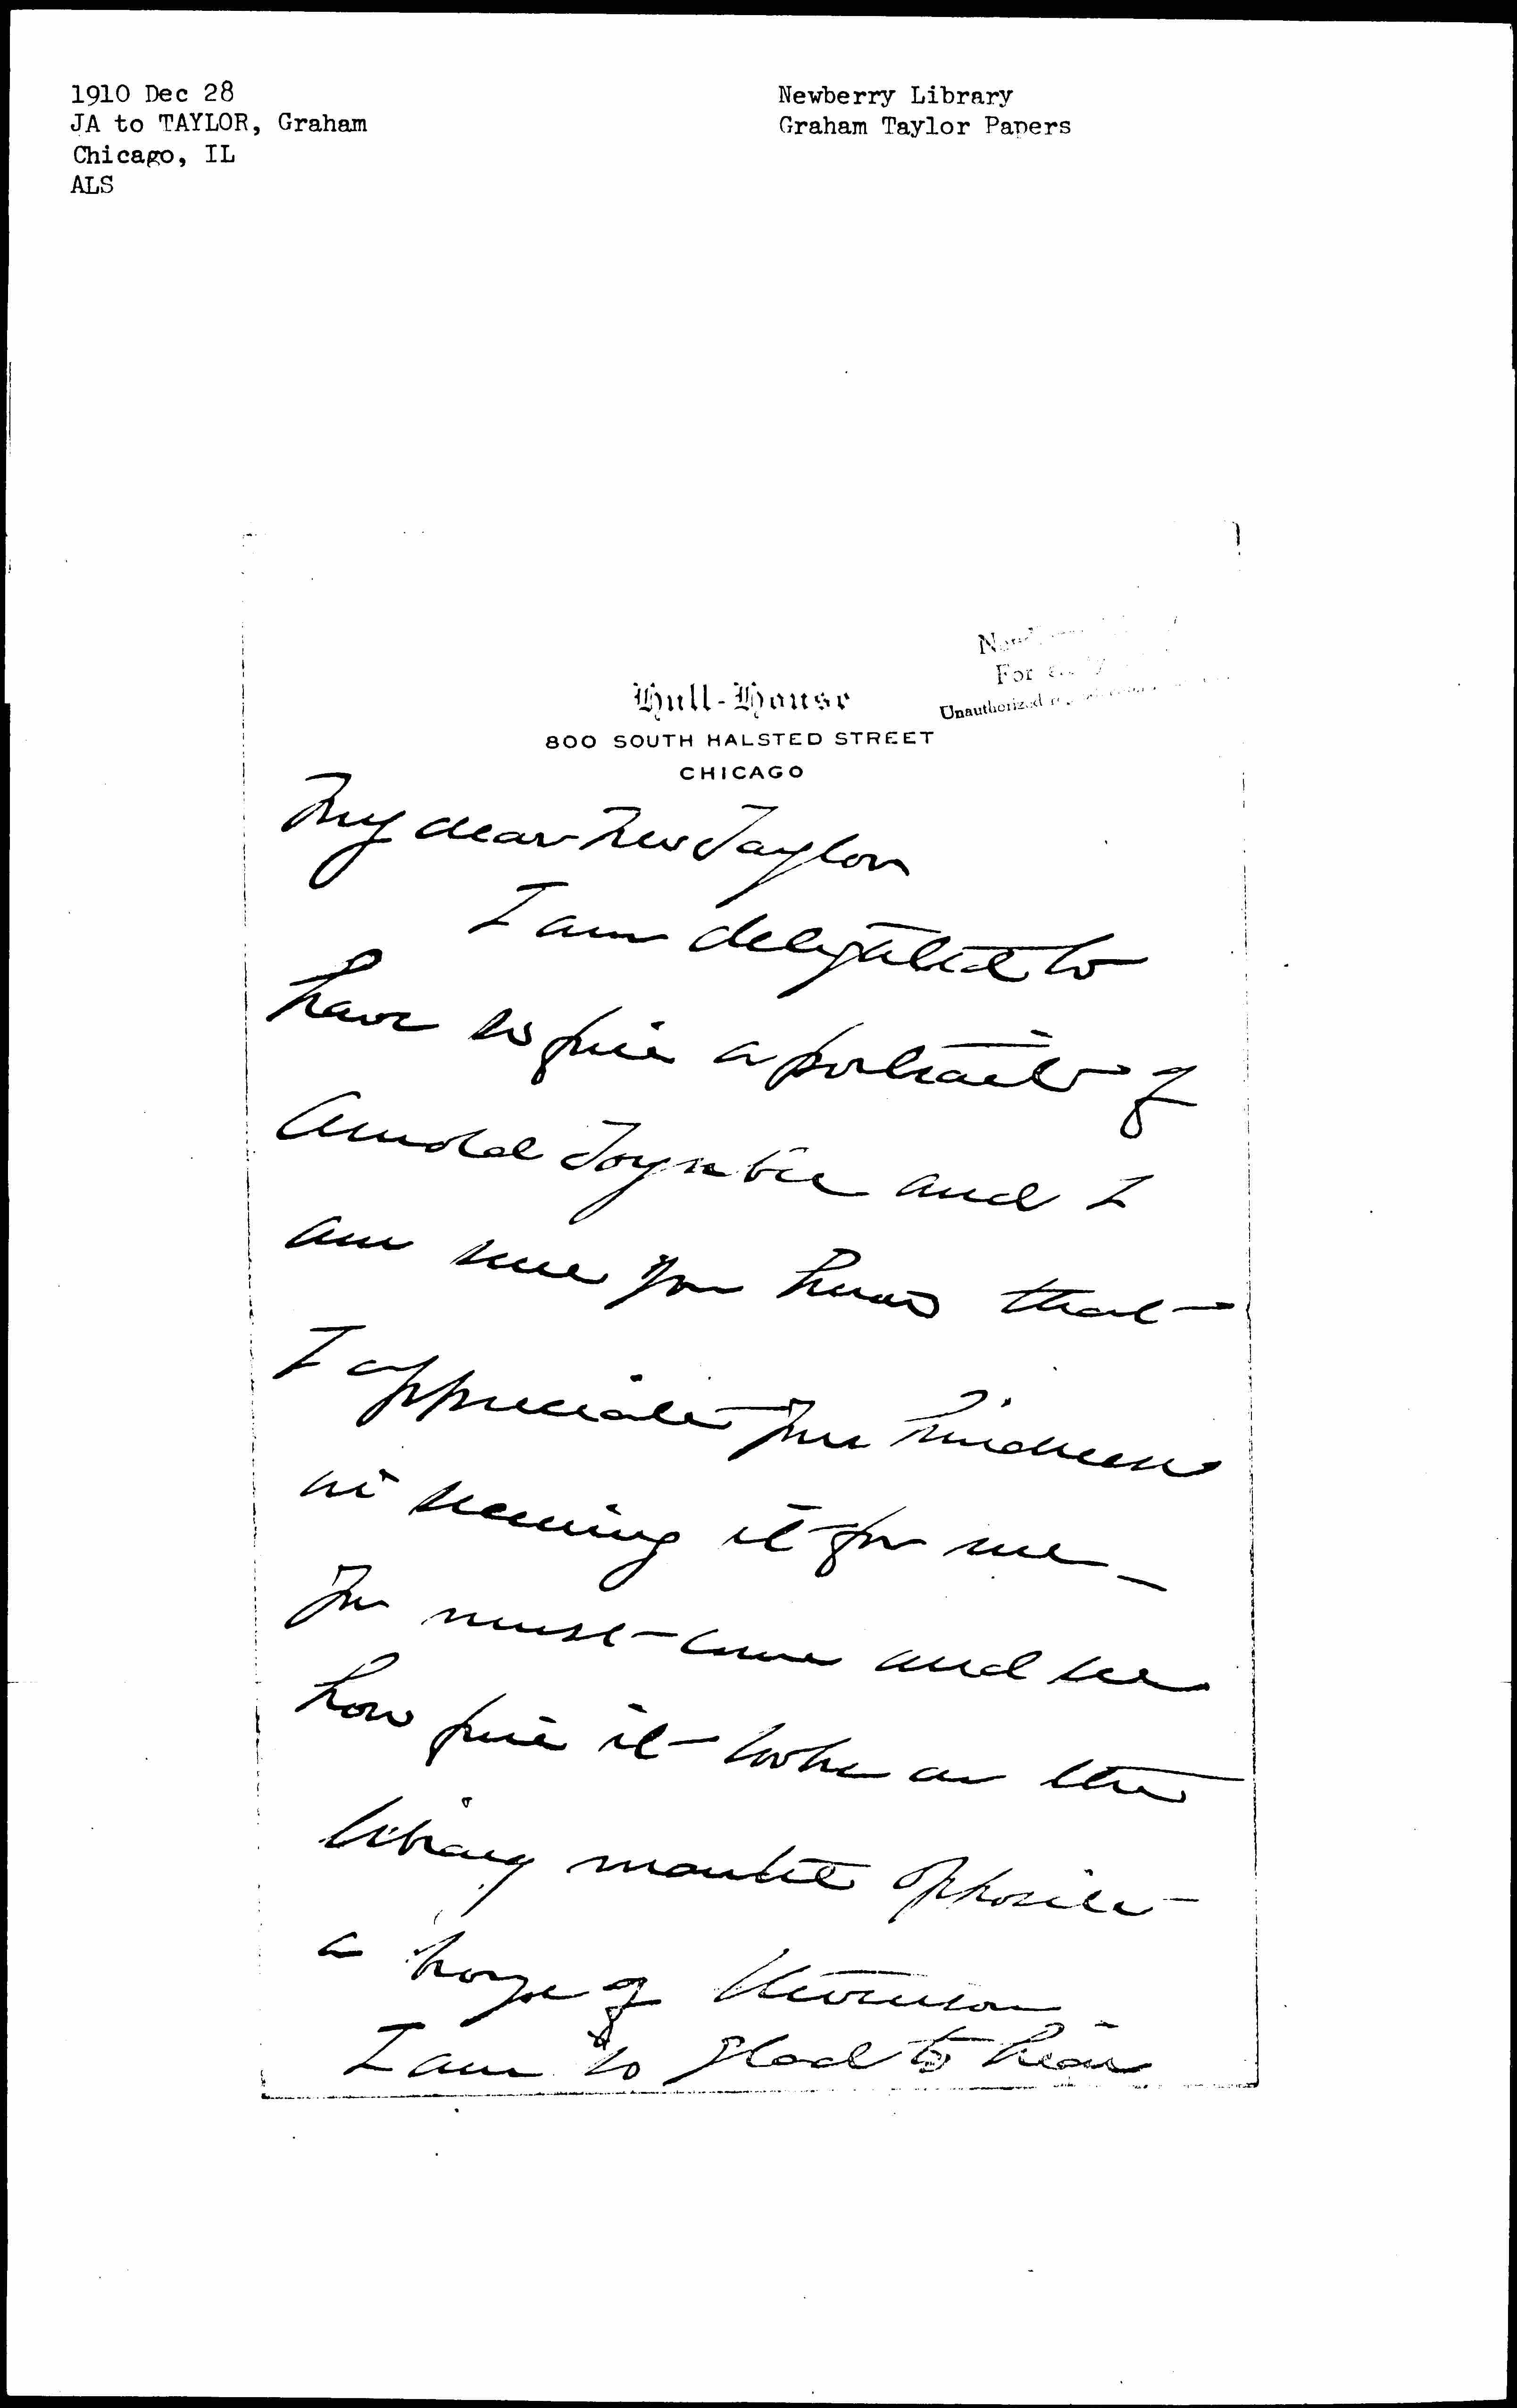 1910 Dec 28
JA to TAYLOR, Graham
Chicago, IL
ALS
Newberry Library
Graham Taylor Papers
For
Unauthorized
Hull-House
800 SOUTH HALSTED STREET
CHICAGO
My dear Taylor
I am delighted to
have so fine a portrait of
Arnold Toynbee and I
am sure you know that
I appreciate your kindness
in securing it for me —
You must come and see
how fine it looks on the
library mantel opposite
a of
I am so glad to hear